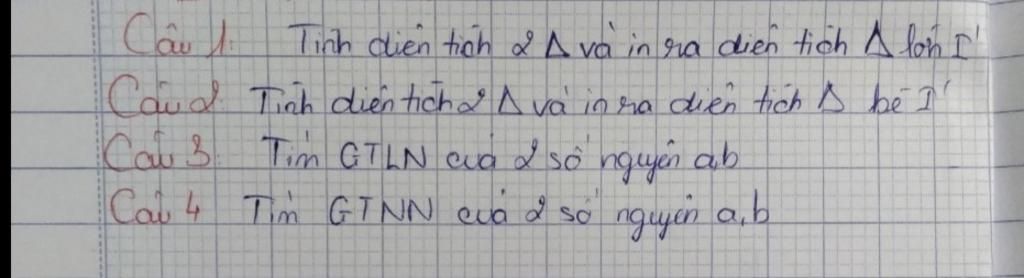 Câu 1: Tính diện tích 2 Δ và in ra diện tích Δ lớn I'
Câu 2: Tính diện tích 2 Δ và in ra diện tích Δ bé I'
Câu 3: Tìm GTLN của 2 số nguyên a,b
Câu 4 Tìm GTNN của 2 số nguyên a,b